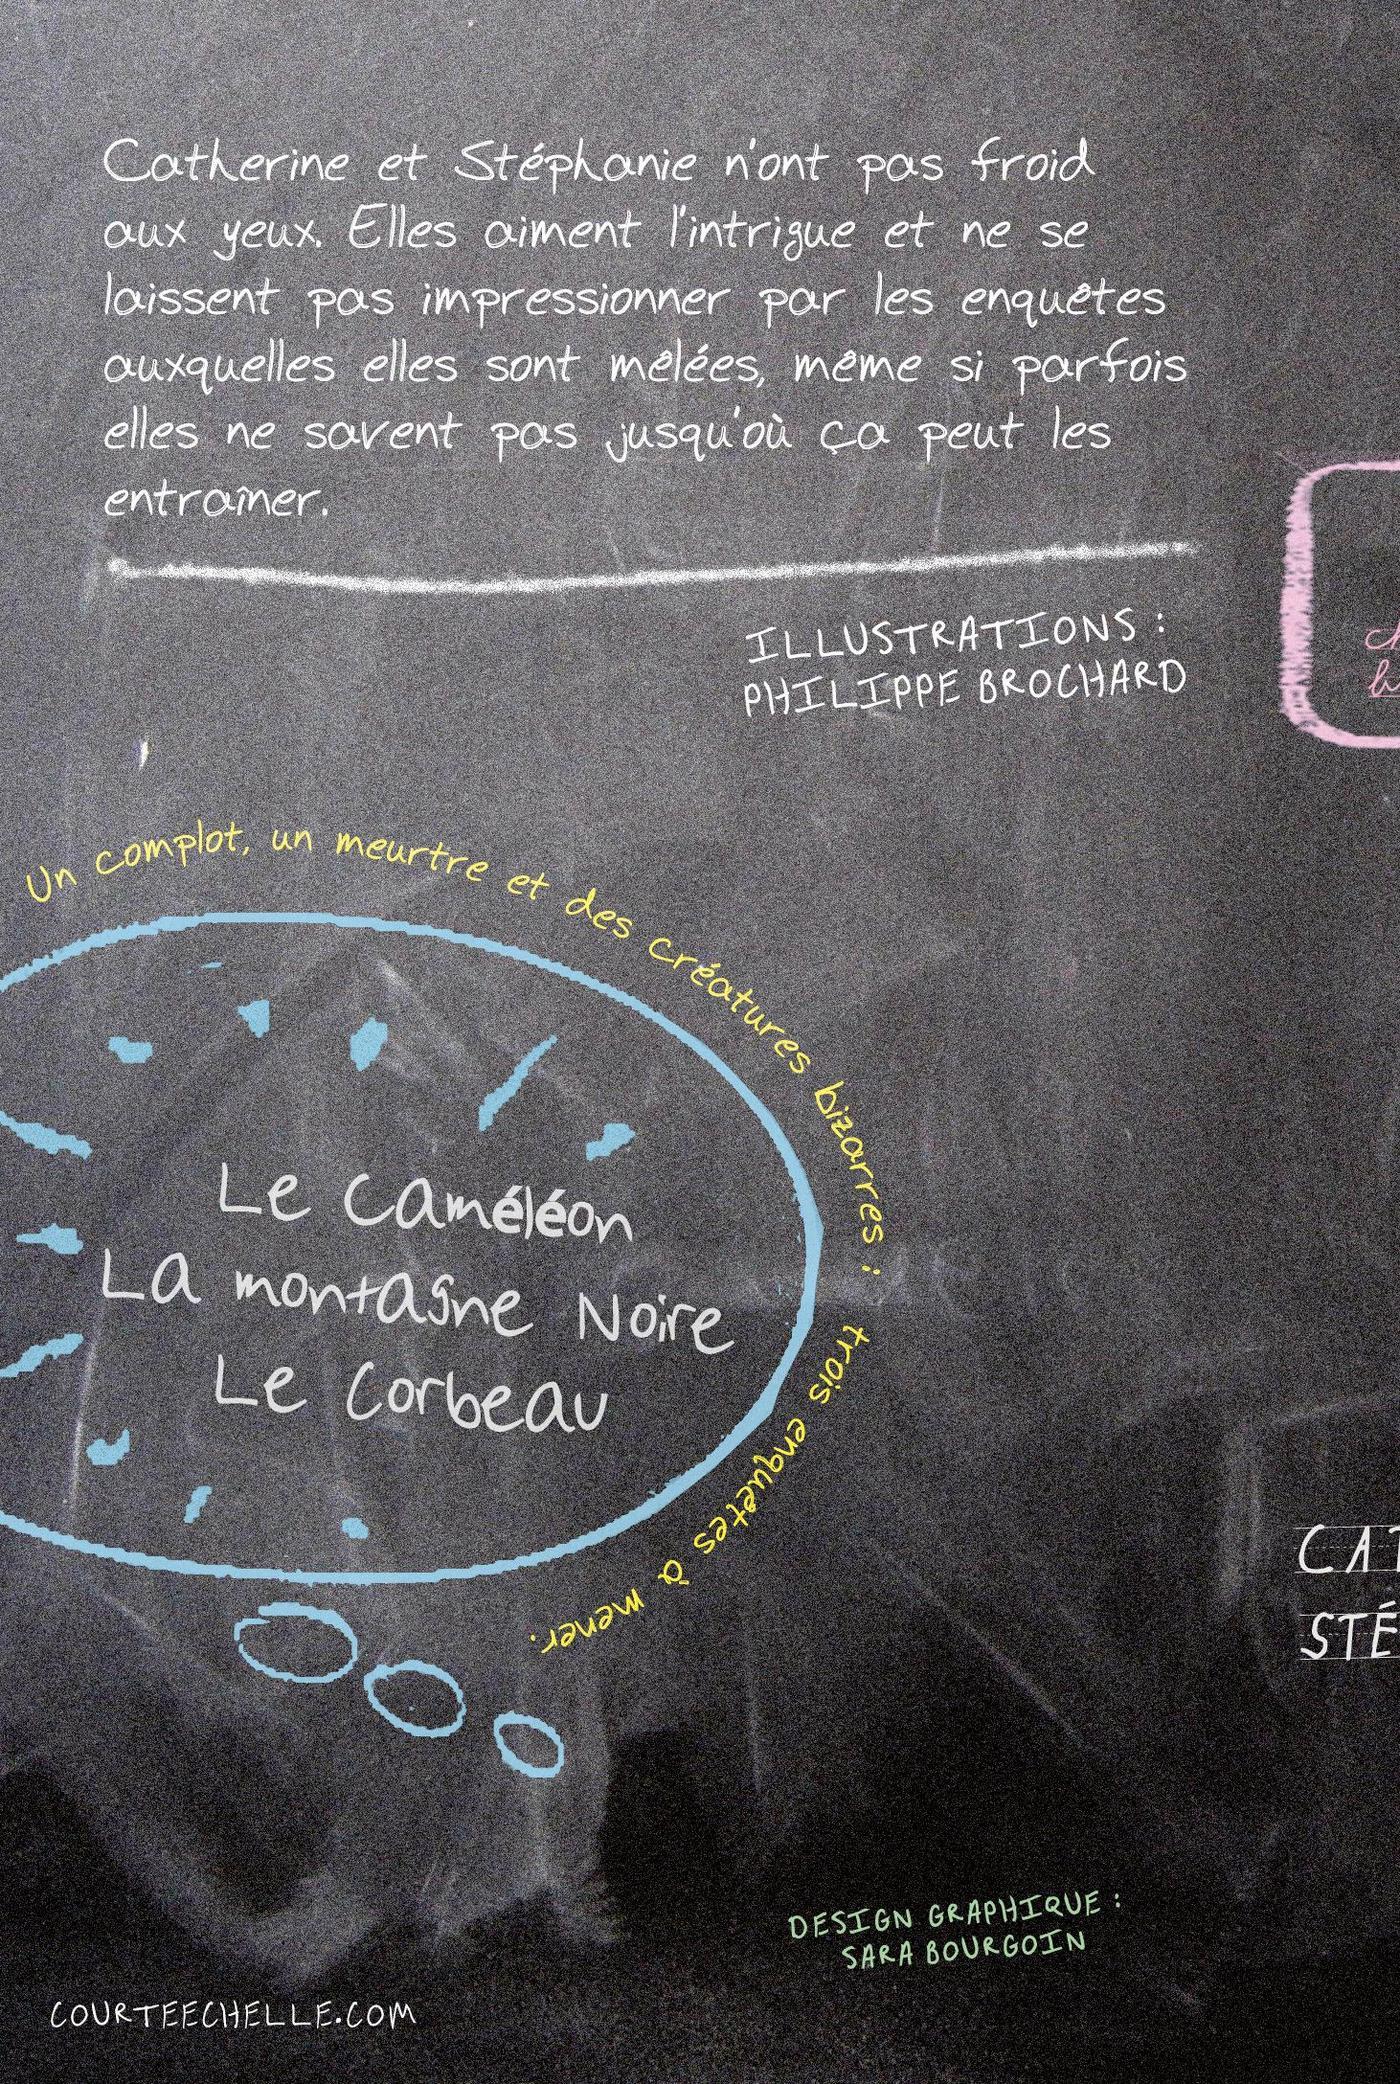 Catherine et Stéphanie n'ont pas froid
aux yeux. Elles aiment l'intrigue et ne se
laissent pas impressionner par les enquêtes
auxquelles elles sont mêlées, même si parfois
elles ne savent pas jusqu'où ça peut les
entraîner.
ILLUSTRATIONS :
PHILIPPE BROCHARD
Un complot, un meurtre et des créatures bizarres : trois enquêtes à mener.
Le Caméléon
La montagne Noire
Le Corbeau
STÉ
DESIGN GRAPHIQUE :
SARA BOURGOIN
COURTEECHELLE.COM